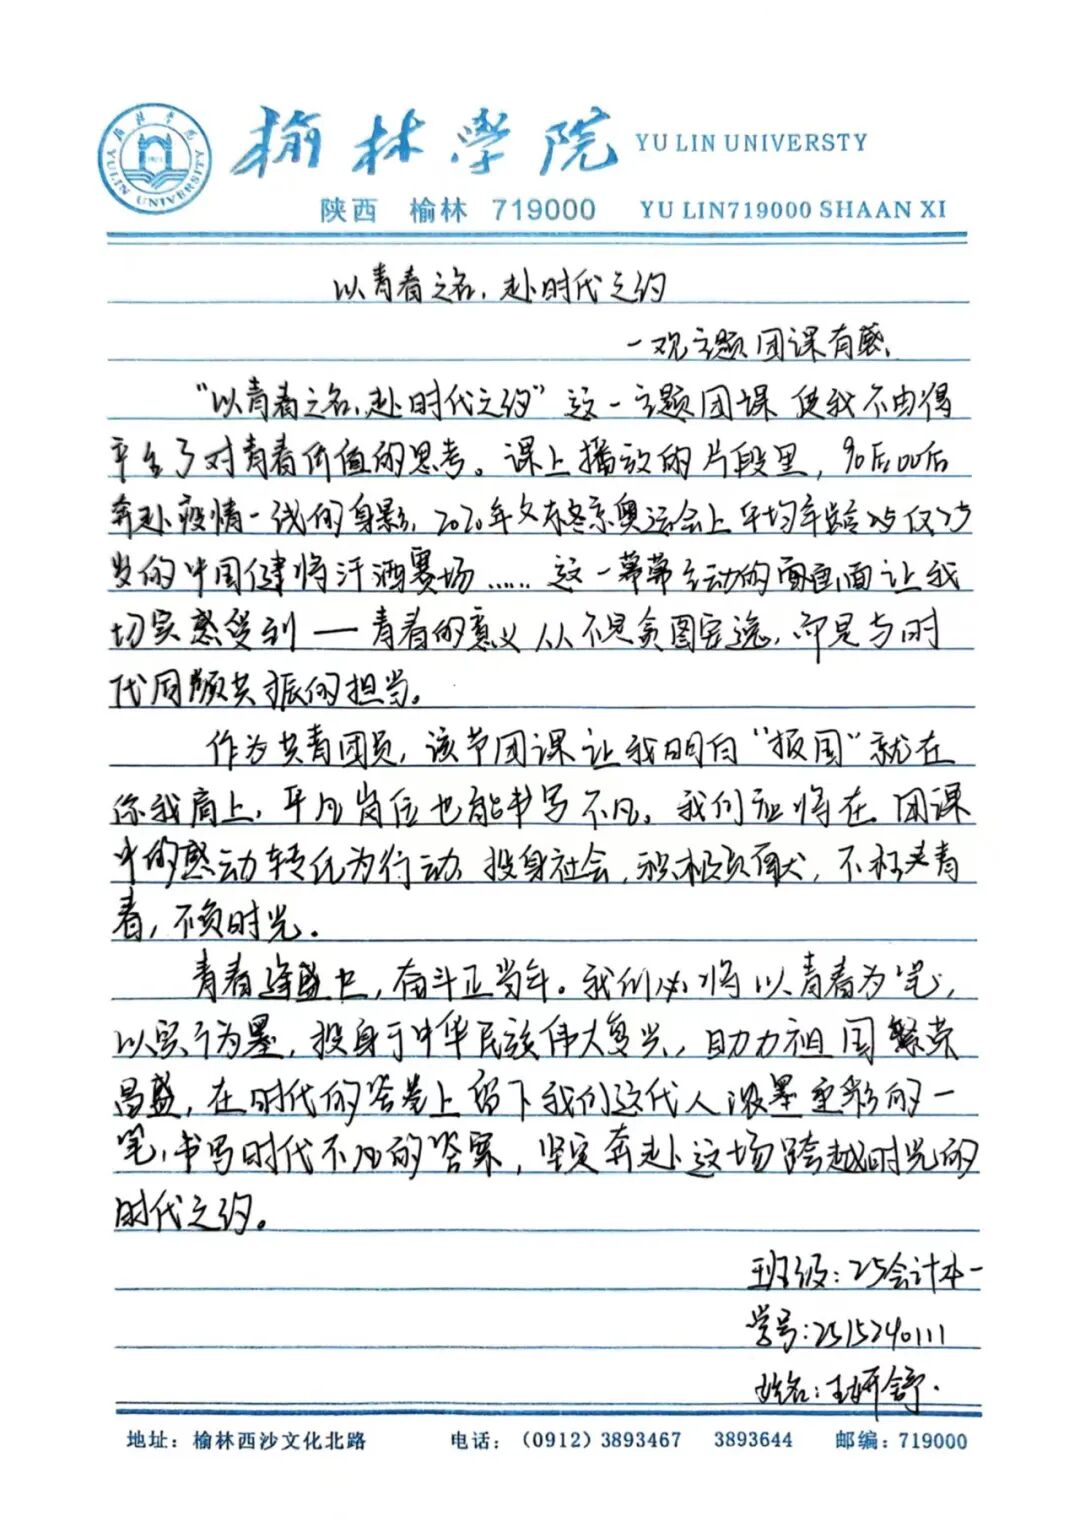 榆林学院 YU LIN UNIVERSTY
榆林学院 YULIN UNIVERSITY
陕西 榆林 719000 YU LIN719000 SHAAN XI
以青春之名,赴时代之约
一观主题团课有感
“以青春之名,赴时代之约”这一主题团课 使我不由得
产生了对青春价值的思考。课上播放的片段里,90后00后
奔赴疫情一线的身影,2020年东京奥运会上平均年龄仅25
岁的中国健将汗洒赛场……这一幕幕生动的画面让我
切实感受到——青春的意义从不是贪图安逸,而是与时
代同频共振的担当。
作为共青团员,该节团课让我明白“报国”就在
你我肩上,平凡岗位也能书写不凡。我们应将在 团课
中的感动转化为行动 投身社会,积极贡献,不枉青
春,不负时光.
青春逢盛世,奋斗正当年。我们必将以青春为笔,
以实行为墨,投身于中华民族伟大复兴,助力祖国繁荣
昌盛,在时代的答卷上留下我们这代人浓墨重彩的一
笔,书写时代不凡的答案,坚定奔赴这场跨越时光的
时代之约。
班级:25会计本一
学号:2515240111
姓名:王妍舒.
地址:榆林西沙文化北路 电话:(0912)3893467 3893644 邮编:719000